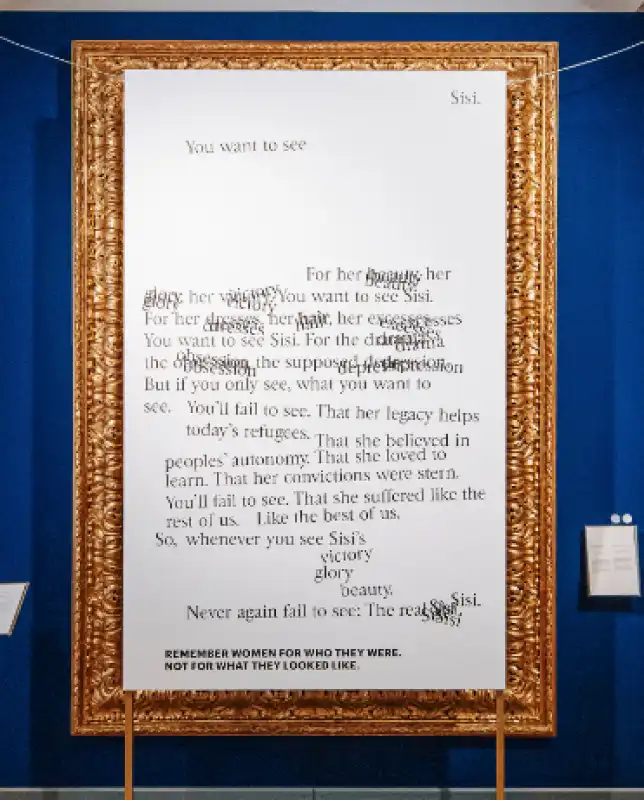 Sisi.
You want to see
For her beauty, her
glory, her victory. You want to see Sisi.
glory victory beauty
For her dresses, her hair, her excesses
dresses hair excesses
You want to see Sisi. For the drama
drama
the obsession, the supposed depression.
obsession depression
But if you only see, what you want to
see. You'll fail to see. That her legacy helps
today's refugees. That she believed in
peoples' autonomy. That she loved to
learn. That her convictions were stern.
You'll fail to see. That she suffered like the
rest of us. Like the best of us.
So, whenever you see Sisi's
victory
glory
beauty.
Never again fail to see: The real Sisi.
REMEMBER WOMEN FOR WHO THEY WERE.
NOT FOR WHAT THEY LOOKED LIKE.